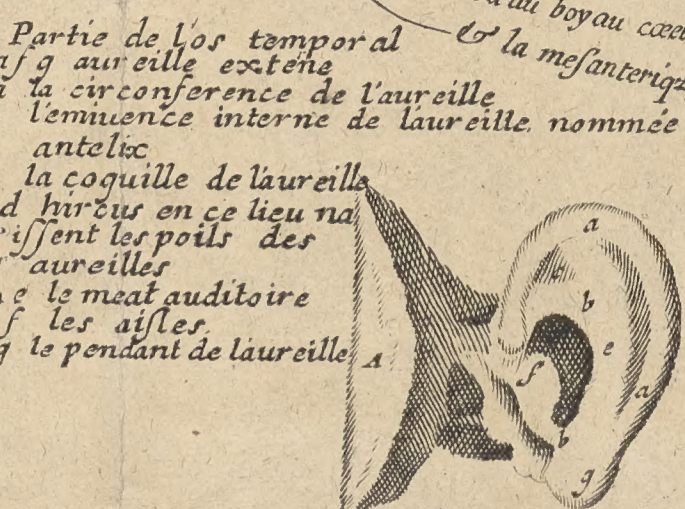 du boyau cœc
& la mesanteriq
Partie de l'os temporal
afg aureille extene
a la circonference de l'aureille
l'emiuence interne de l'aureille, nommée
antelix
la coquille de l'aureille
d hircus en ce lieu na
issent les poils des
aureilles
e le meat auditoire
f les aisles
g le pendant de l'aureille
a
c
b
e
f
A
a
b
g